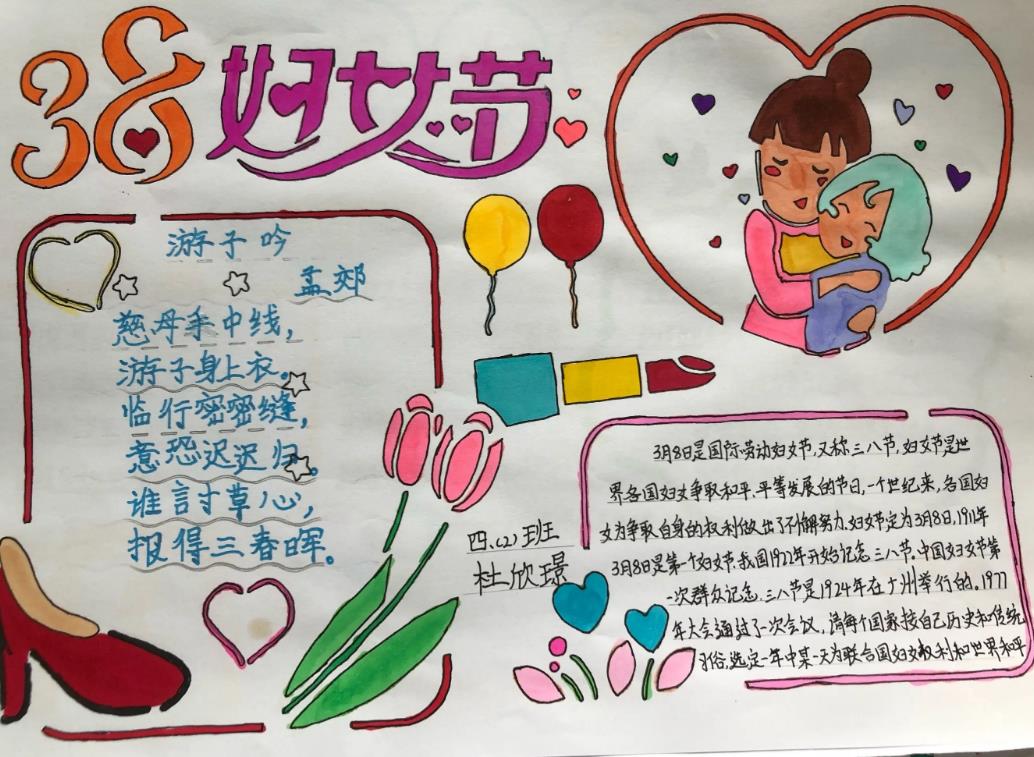 38妇女节
游子吟
孟郊
慈母手中线，
游子身上衣。
临行密密缝，
意恐迟迟归。
谁言寸草心，
报得三春晖。
四、(2)班
杜欣璟
3月8日是国际劳动妇女节，又称三八节，妇女节是世
界各国妇女争取和平、平等发展的节日，一个世纪来，各国妇
女为争取自身的权利做出了不懈努力。妇女节定为3月8日，1911年
3月8日是第一个妇女节，我国1922年开始记念三八节。中国妇女节第
一次群众记念三八节是1924年在广州举行的。1977
年大会通过了一次会议，请每个国家按自己历史和传统
习俗，选定一年中某一天为联合国妇女权利和世界和平